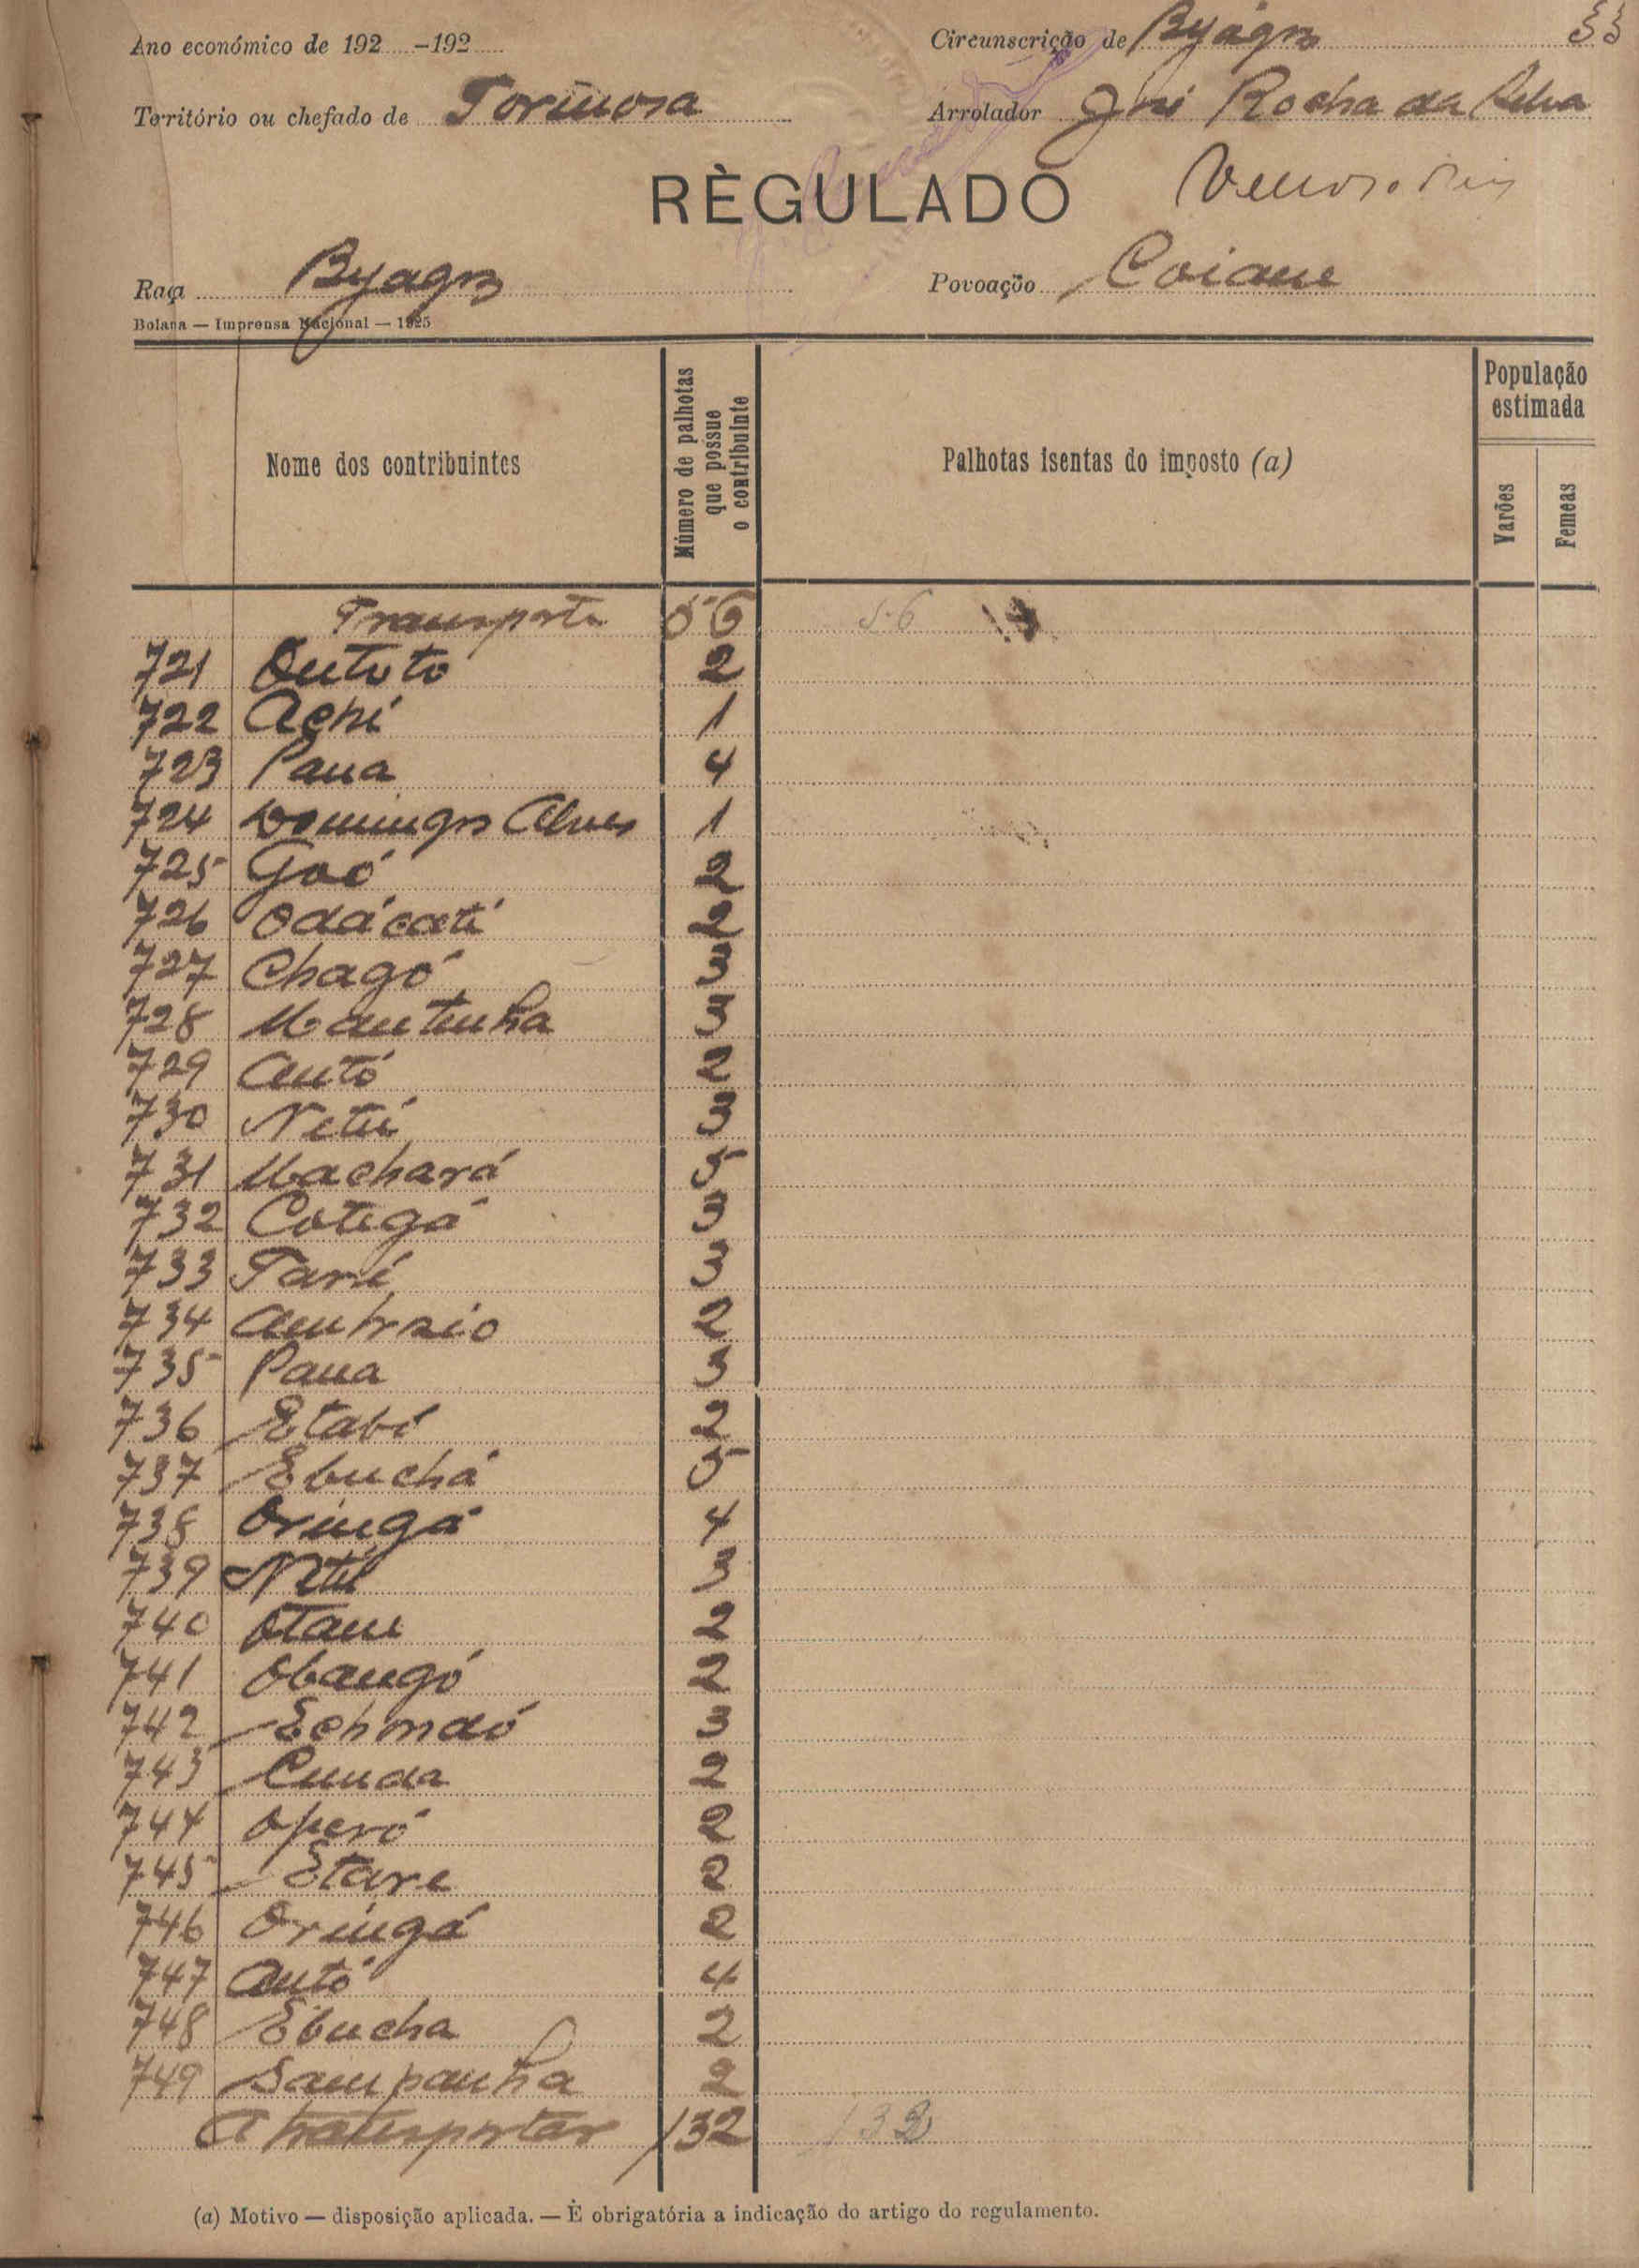 Ano económico de 192 -192 Circunscrição de Byagos 33
Território ou chefado de Formosa Arrolador José Rocha da Silva
RÈGULADO
Raça Byagos Povoação Coiane
Bolama — Imprensa Nacional — 1925
Nome dos contribuintes Número de palhotas que possue o contribuinte Palhotas isentas do imposto (a) População estimada Varões Femeas
Transporte 56 56
721 Oututo 2
722 Achi 1
723 Paua 4
724 Domingos Alves 1
725 Goó 2
726 Odácati 2
727 Chagó 3
728 Mantenha 3
729 Antó 2
730 Netú 3
731 Machará 5
732 Cotegá 3
733 Tarí 3
734 Ambrsio 2
735 Paua 3
736 Etabí 2
737 Ebuchá 5
738 Oringá 4
739 Netú 3
740 Otane 2
741 Obangó 2
742 Echondó 3
743 Cunda 2
744 Operó 2
745 Etare 2
746 Oringá 2
747 Antó 4
748 Ebucha 2
749 Sampanha 2
A transportar 132 132
(a) Motivo — disposição aplicada. — È obrigatória a indicação do artigo do regulamento.